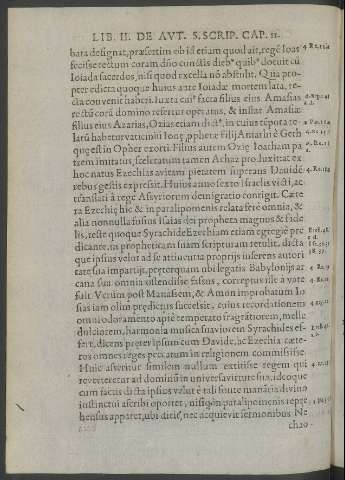 LIB. II. DE AVT. S. SCRIP. CAP. 11.
bara designat, præsertim eb id etiam quod ait, regẽ Ioas
fecisse rectum coram dño cunctis dieb⁹ quib⁹ docuit cũ
Ioiada sacerdos, nisi quod excelsa nõ abstulit. Quia pro-
pter edicta quoque huius ante Ioiadæ mortem lata, re-
cta convenit haberi. Iuxta cui⁹ facta filius eius Amasias
rectũ corã domino refertur operatus, & instar Amasiæ
filius eius Azarias, Ozias etiam dict⁹, in cuius tẽpora re-
latũ habetur vaticiniũ Ionę, pphetæ filij Amathi è Geth
quę est in Opher exorti. Filius autem Ozię Ioatham pa
trem imitatus, sceleratum tamen Achaz produxit at ex
hoc natus Ezechias avitam pietatem superans Davidẽ
rebus gestis expressit. Huius anno sexto Israelis victi, ac
translati à rege Assyriorum demigratio contigit. Cæte
ra Ezechię hic & in paralipomenis relata ferè omnia, &
alia nonnulla fusius Isaias dei propheta magnus & fide
lis, teste quoque Syrachide Ezechiam etiam egregiè prę
dicante, in propheticam suam scripturam retulit, dicta
que ipsius velut ad se attinentia proprijs inserens autori
tate sua impartijt, pręterquam ubi legatis Babylonijs ar
cana sua omnia ostendisse fassus, correptus ille à vate
fuit. Verùm post Manassem, & Amon improbatum Io
sias iam olim prędictus succesit, cuius recordationem
omni odoramento aptè temperato fragrãtiorem, melle
dulciorem, harmonia musica suaviorem Syrachides ef-
fert, dicens pręter ipsum cum Davide, ac Ezechia cæte-
ros omnes reges peccatum in religionem commisisse.
Huic asseritur similem nullum extitisse regem qui
reverteretur ad dominũ in universa virtute sua, ideoque
cum factis dicta ipsius velut è tali fonte manãtia divino
instinctui ascribi oportet, nisi qđ in paralipomenis repre
hensus apparet, ubi dicit⁹, nec acquievit sermonibus Ne
chao